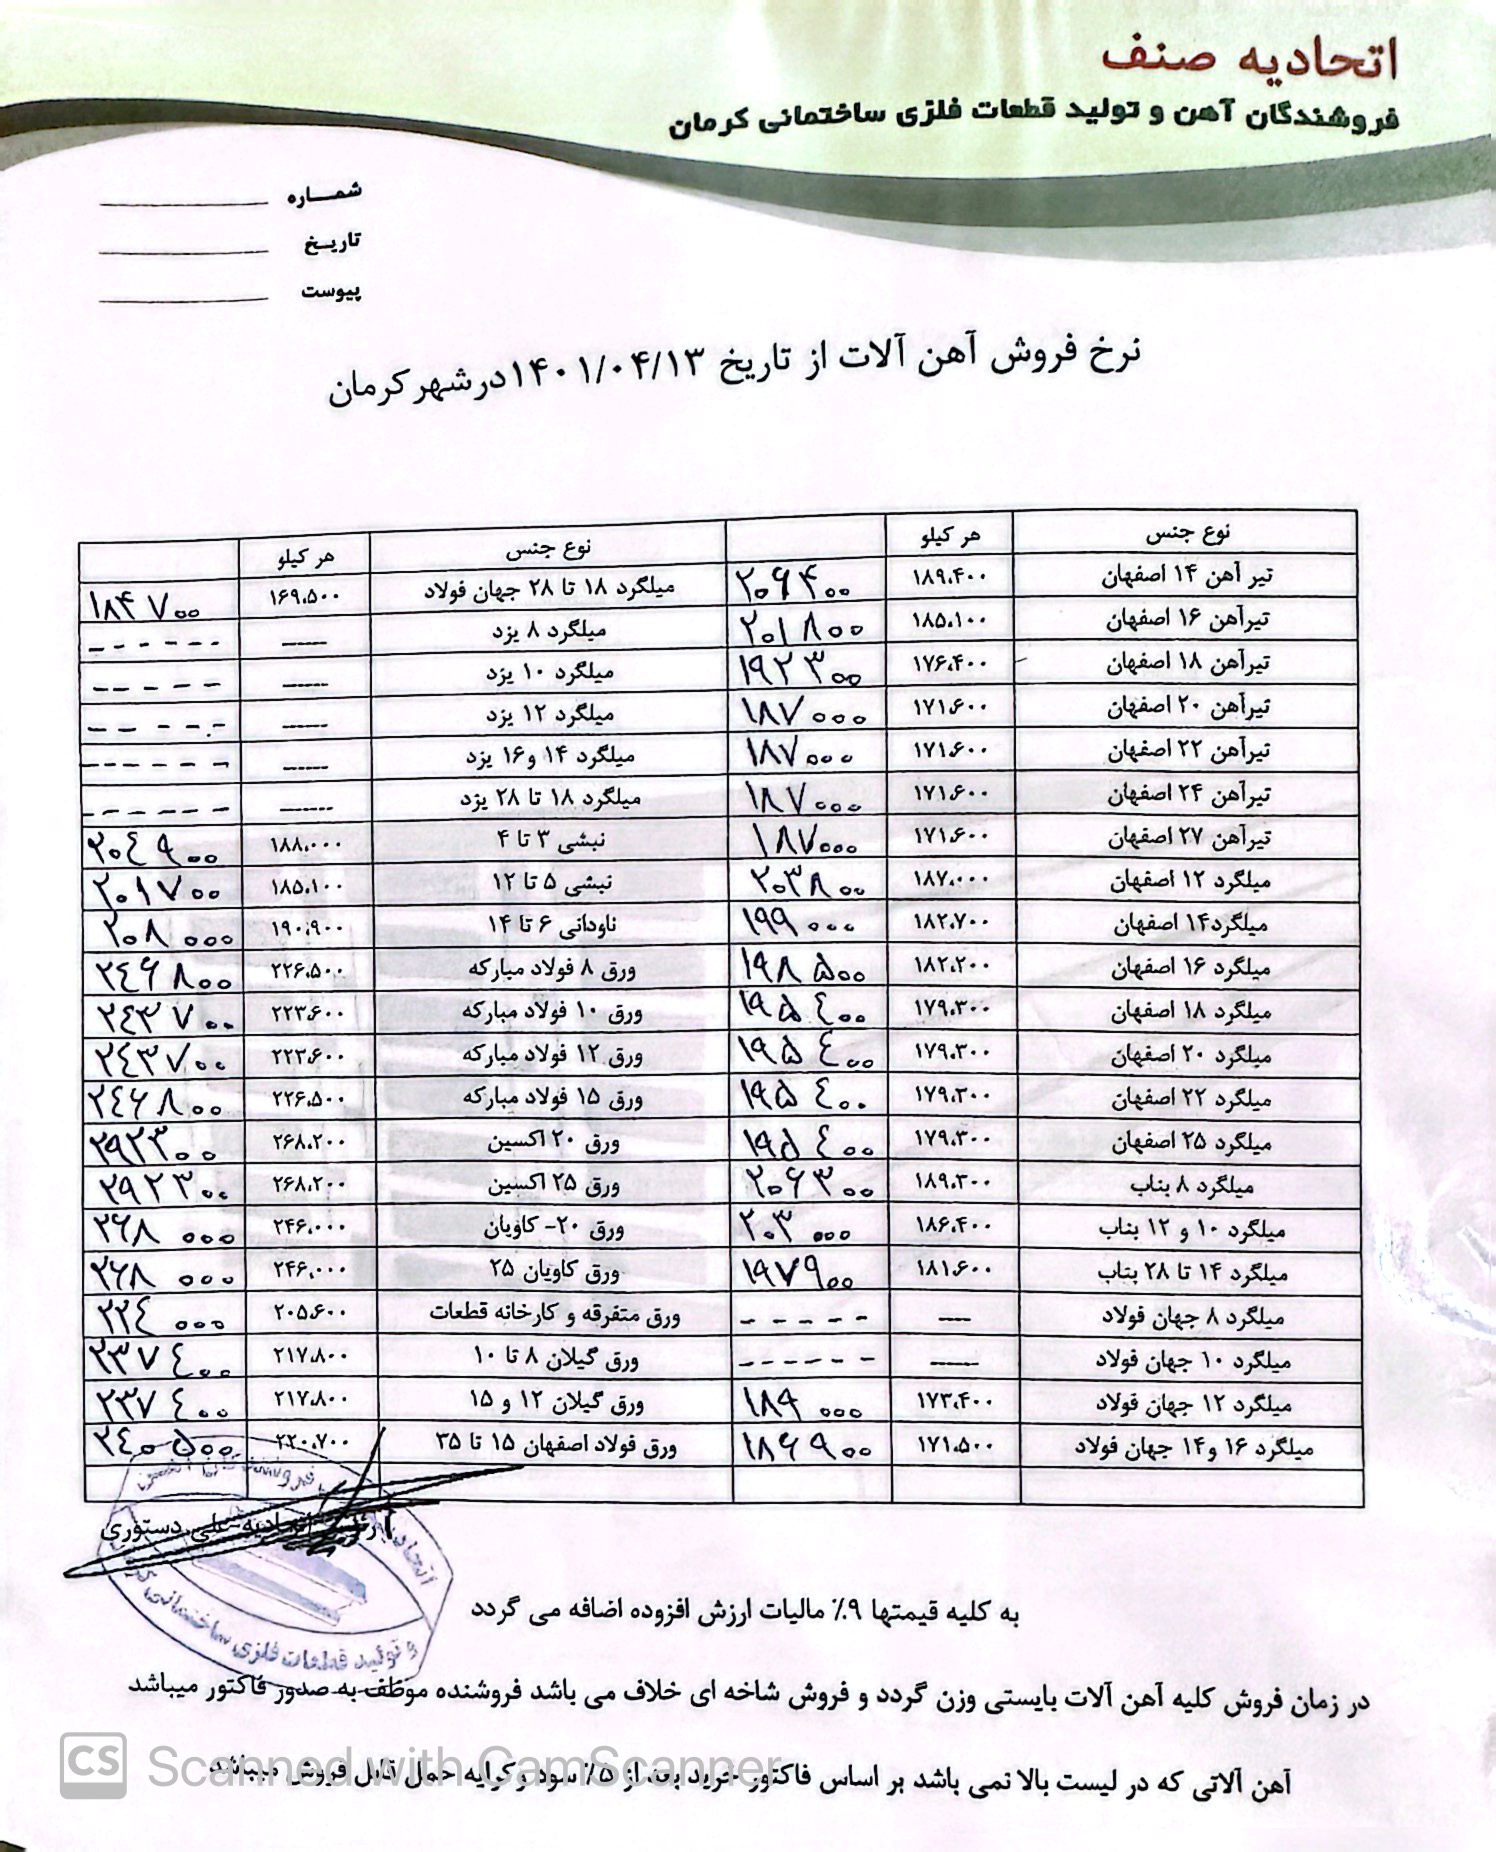 اتحادیه صنف
فروشندگان آهن و تولید قطعات فلزی ساختمانی کرمان
شماره
تاریخ
پیوست
نرخ فروش آهن آلات از تاریخ ۱۴۰۱/۰۴/۱۳ درشهرکرمان
نوع جنس هر کیلو نوع جنس هر کیلو
تیر آهن ۱۴ اصفهان ۱۸۹.۴۰۰ ۲۰۶۴۰۰ میلگرد ۱۸ تا ۲۸ جهان فولاد ۱۶۹.۵۰۰ ۱۸۴۷۰۰
تیرآهن ۱۶ اصفهان ۱۸۵.۱۰۰ ۲۰۱۸۰۰ میلگرد ۸ یزد ----- ------
تیرآهن ۱۸ اصفهان ۱۷۶.۴۰۰ ۱۹۲۳۰۰ میلگرد ۱۰ یزد ----- -----
تیرآهن ۲۰ اصفهان ۱۷۱.۶۰۰ ۱۸۷۰۰۰ میلگرد ۱۲ یزد ----- -----
تیرآهن ۲۲ اصفهان ۱۷۱.۶۰۰ ۱۸۷۰۰۰ میلگرد ۱۴ و۱۶ یزد ----- ------
تیرآهن ۲۴ اصفهان ۱۷۱.۶۰۰ ۱۸۷۰۰۰ میلگرد ۱۸ تا ۲۸ یزد ------ ------
تیرآهن ۲۷ اصفهان ۱۷۱.۶۰۰ ۱۸۷۰۰۰ نبشی ۳ تا ۴ ۱۸۸.۰۰۰ ۲۰۴۹۰۰
میلگرد ۱۲ اصفهان ۱۸۷.۰۰۰ ۲۰۳۸۰۰ نبشی ۵ تا ۱۲ ۱۸۵.۱۰۰ ۲۰۱۷۰۰
میلگرد۱۴ اصفهان ۱۸۲.۷۰۰ ۱۹۹۰۰۰ ناودانی ۶ تا ۱۴ ۱۹۰.۹۰۰ ۲۰۸۰۰۰
میلگرد ۱۶ اصفهان ۱۸۲.۲۰۰ ۱۹۸۵۰۰ ورق ۸ فولاد مبارکه ۲۲۶.۵۰۰ ۲۴۶۸۰۰
میلگرد ۱۸ اصفهان ۱۷۹.۳۰۰ ۱۹۵۴۰۰ ورق ۱۰ فولاد مبارکه ۲۲۳.۶۰۰ ۲۴۳۷۰۰
میلگرد ۲۰ اصفهان ۱۷۹.۳۰۰ ۱۹۵۴۰۰ ورق ۱۲ فولاد مبارکه ۲۲۳.۶۰۰ ۲۴۳۷۰۰
میلگرد ۲۲ اصفهان ۱۷۹.۳۰۰ ۱۹۵۴۰۰ ورق ۱۵ فولاد مبارکه ۲۲۶.۵۰۰ ۲۴۶۸۰۰
میلگرد ۲۵ اصفهان ۱۷۹.۳۰۰ ۱۹۵۴۰۰ ورق ۲۰ اکسین ۲۶۸.۲۰۰ ۲۹۲۳۰۰
میلگرد ۸ بناب ۱۸۹.۳۰۰ ۲۰۶۳۰۰ ورق ۲۵ اکسین ۲۶۸.۲۰۰ ۲۹۲۳۰۰
میلگرد ۱۰ و ۱۲ بناب ۱۸۶.۴۰۰ ۲۰۳۰۰۰ ورق ۲۰- کاویان ۲۴۶.۰۰۰ ۲۶۸۰۰۰
میلگرد ۱۴ تا ۲۸ بناب ۱۸۱.۶۰۰ ۱۹۷۹۰۰ ورق کاویان ۲۵ ۲۴۶.۰۰۰ ۲۶۸۰۰۰
میلگرد ۸ جهان فولاد ---- ----- ورق متفرقه و کارخانه قطعات ۲۰۵.۶۰۰ ۲۲۴۰۰۰
میلگرد ۱۰ جهان فولاد ----- ------ ورق گیلان ۸ تا ۱۰ ۲۱۷.۸۰۰ ۲۳۷۴۰۰
میلگرد ۱۲ جهان فولاد ۱۷۳.۴۰۰ ۱۸۹۰۰۰ ورق گیلان ۱۲ و ۱۵ ۲۱۷.۸۰۰ ۲۳۷۴۰۰
میلگرد ۱۶ و۱۴ جهان فولاد ۱۷۱.۵۰۰ ۱۸۶۹۰۰ ورق فولاد اصفهان ۱۵ تا ۳۵ ۲۲۰.۷۰۰ ۲۴۰۵۰۰
اتحادیه-علی دستوری
و تولید قطعات فلزی ساختمانی
به کلیه قیمتها ۹٪ مالیات ارزش افزوده اضافه می گردد
در زمان فروش کلیه آهن آلات بایستی وزن گردد و فروش شاخه ای خلاف می باشد فروشنده موظف به صدور فاکتور میباشد
آهن آلاتی که در لیست بالا نمی باشد بر اساس فاکتور خرید بعد از ۵٪ سود وکرایه حمل قابل فروش میباشد
CS Scanned with CamScanner